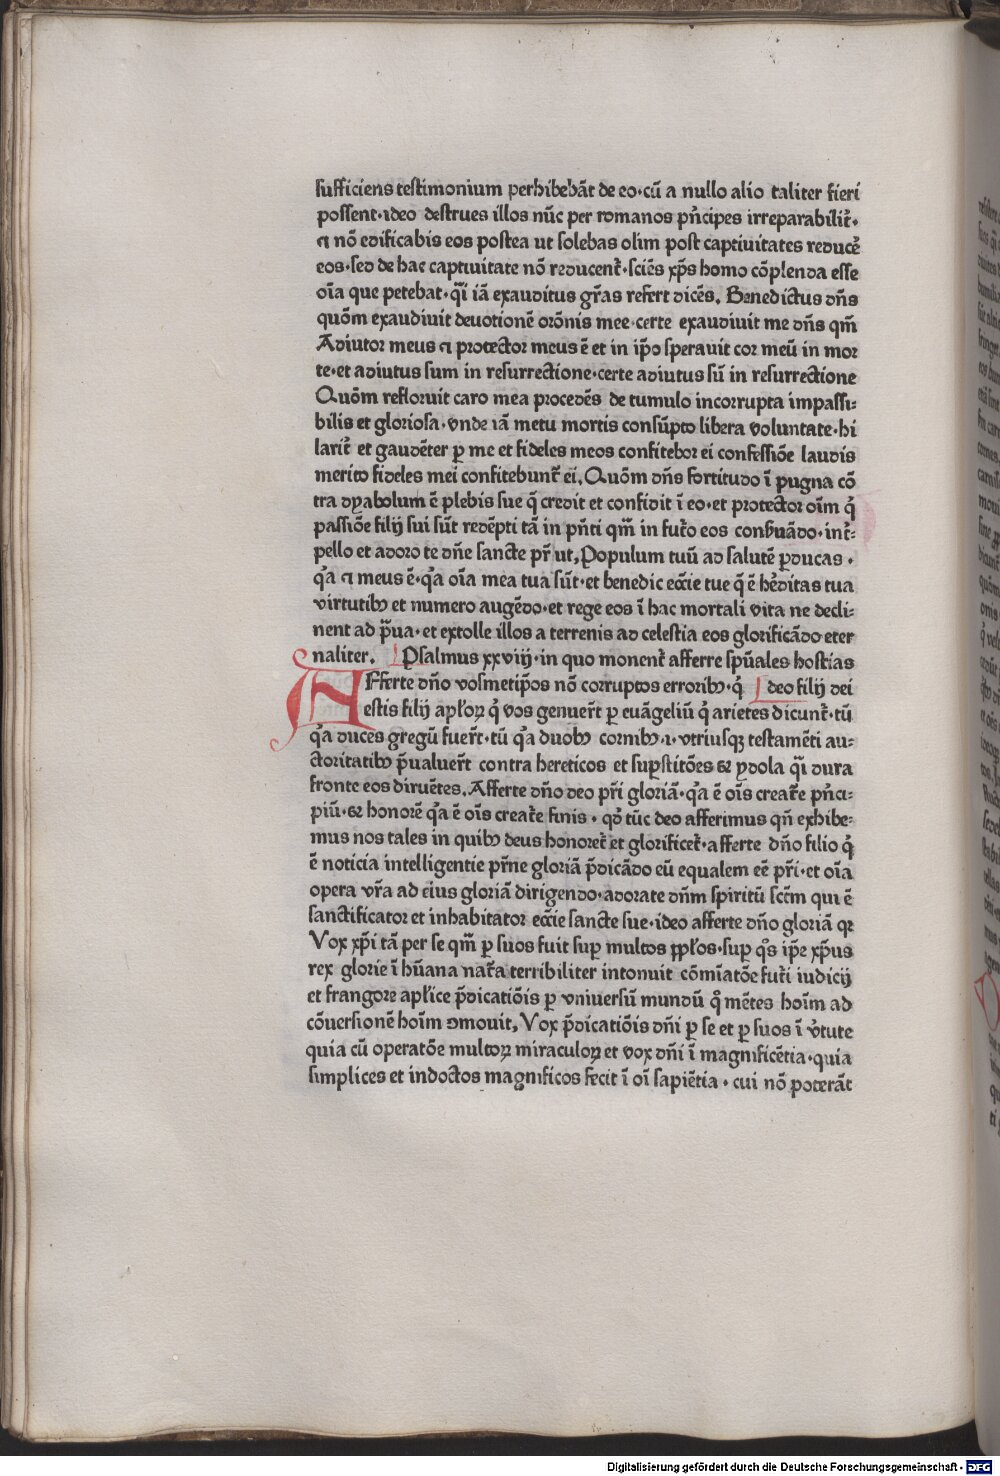 sufficiens testimonium perhibebāt de eo·cū a nullo alio taliter fieri
possent·ideo destrues illos nūc per romanos pn̄cipes irreparabilit̄·
⁊ nō edificabis eos postea ut solebas olim post captiuitates reducē
eos·sed de hac captiuitate nō reducent̄·sciēs xp̄s homo cōplenda esse
oīa que petebat·q̄i iā exauditus gr̄as refert dicēs. Benedictus dn̄s
quōm exaudiuit deuotionē orōnis mee·certe exaudiuit me dn̄s qm̄
Adiutor meus ⁊ protector meus ē et in ip̄o sperauit cor meū in mor
te·et adiutus sum in resurrectione·certe adiutus sū in resurrectione
Quōm refloruit caro mea procedēs de tumulo incorrupta impassi⸗
bilis et gloriosa·vnde iā metu mortis consūpto libera voluntate·hi
larit̄ et gaudēter ꝑ me et fideles meos confitebor ei confessiōe laudis
merito fideles mei confitebunt̄ ei. Quōm dn̄s fortitudo ī pugna cō
tra dyabolum ē plebis sue q̄ credit et confidit ī eo·et protector oīm q̄
passiōe filij sui sūt redēpti tā in pn̄ti qm̄ in fut̄o eos conẜuādo·int̄⸗
pello et adoro te dn̄e sancte pr̄ ut, Populum tuū ad salutē ꝑducas·
q̄a ⁊ meus ē·q̄a oīa mea tua sūt·et benedic eccīe tue q̄ ē hēditas tua
virtutibꝫ et numero augēdo·et rege eos ī hac mortali vita ne decli⸗
nent ad p̄ua·et extolle illos a terrenis ad celestia eos glorificādo eter
naliter. Psalmus xxviij·in quo monent̄ afferre spūales hostias
AFferte dn̄o vosmetip̄os nō corruptos erroribꝫ·q̄ deo filij dei
estis filij apl̄oꝝ q̄ vos genuer̄t ꝑ euāgeliū q̄ arietes dicunt̄·tū
q̄a duces gregū fuer̄t·tū q̄a duobꝫ cornibꝫ·.i· vtriusqꝫ testamēti au⸗
ctoritatibꝫ p̄ualuer̄t contra hereticos et suꝑstitōes ⁊ ydola q̄i dura
fronte eos diruētes. Afferte dn̄o deo pr̄i gloriā·q̄a ē oīs creat̄e pn̄ci⸗
piū·⁊ honorē q̄a ē oīs creat̄e finis·qd̄ tūc deo afferimus qn̄ exhibe⸗
mus nos tales in quibꝫ deus honoret̄ et glorificet̄·afferte dn̄o filio q̄
ē noticia intelligentie pr̄ne gloriā p̄dicādo eū equalem eē pr̄i·et oīa
opera vr̄a ad eius gloriā dirigendo·adorate dn̄m spiritū sc̄tm qui ē
sanctificator et inhabitator eccīe sancte sue·ideo afferte dn̄o gloriā qꝛ
Vox xp̄i tā per se qm̄ ꝑ suos fuit suꝑ multos ppl̄os·suꝑ q̄s ip̄e xp̄us
rex glorie ī hūana nat̄a terribiliter intonuit cōmīatōe fut̄i iudicij
et frangore apl̄ice p̄dicatiōis ꝑ vniuersū mundū q̄ mētes hoīm ad
cōuersionē hoīm ꝯmouit, Vox p̄dicatiōis dn̄i ꝑ se et ꝑ suos ī v̄tute
quia cū operatōe multoꝝ miraculoꝝ et vox dn̄i ī magnificētia·quia
simplices et indoctos magnificos fecit ī oī sapiētia·cui nō poterāt
Digitalisierung gefördert durch die Deutsche Forschungsgemeinschaft - DFG